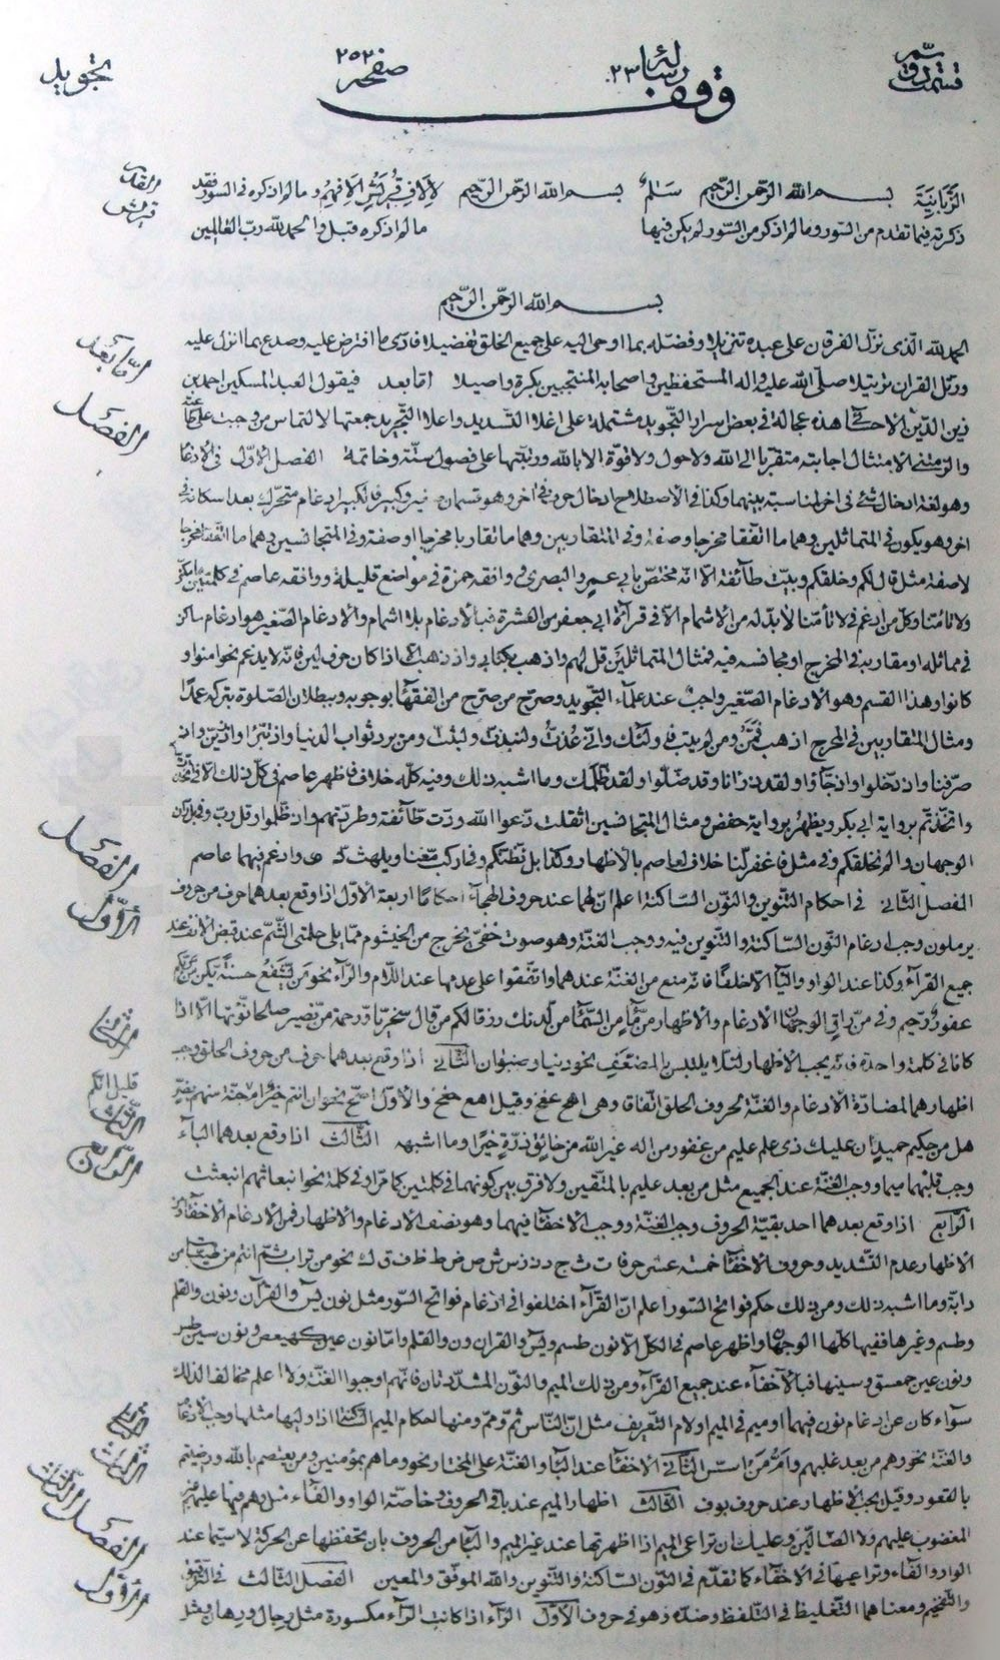 قسمت دوم
رسالهٔ ٢٣
صفحه ٢٥٢
تجويد
وقف
الزَّبَانِيَةَ بسم الله الرّحمن الرّحيم سَلٰمٌ بسم الله الرّحمن الرّحيم لِاِيلَافِ قُرَيْشٍ اِلَافِهِمْ و مالم اذكره فى السور فقد
القدر
قريش
ذكرته فيما تقدم من السّور ومالم اذكر من السّور لم يكن فيها مالم اذكره قبل والحمد لله ربّ العالمين
بسم الله الرّحمن الرّحيم
الحمد لله الّذى نزّل الفرقان على عبده تنزيلا وفضّله بما اوحى اليه على جميع الخلق تفضيلا فادّى ما افترض عليه وصدع بما انزل عليه
امّا بعد
ورتّل القران ترتيلا صلّى الله عليه واله المستحفظين واصحابه المنتجبين بكرة واصيلا امّا بعد فيقول العبد المسكين احمد بن
الفصل
زين الدّين الاحسائى هذه عجالة فى بعض اسرار التّجويد مشتملة على اغلا التّسديد واعلا التّجريد جمعتها لالتماس من وجبت علىّ
والزمتنى الامتثال اجابته متقرّبا الى الله ولا حول ولا قوّة الا بالله ورتّبتها على فصول ستّة وخاتمة الفصل الاوّل فى الادغام
وهو لغة ادخال شئ فى اخر لمناسبة بينهما وكذا فى الاصطلاح ادخال حرف فى اخر وهو قسمان صغير وكبير فالكبير ادغام متحرّك بعد اسكانه فى
اخر وهو يكون فى المتماثلين وهما ما اتّفقا مخرجا وصفة وفى المتقاربين وهما ما تقاربا مخرجا او صفة وفى المتجانسين وهما ما اتّفقا مخرجا
لا صفة مثل قال لكم وخلقكم وبيّت طآئفة الّا انّه مختصّ بابى عمرو البصرى ووافقه حمزة فى مواضع قليلة ووافقه عاصم فى كلمتين
ولا تأمنّا وكلّ من ادغم فى لا تأمنّا لا بدّ له من الاشمام الّا فى قرآءة ابى جعفر من العشرة فبالادغام بلا اشمام والادغام الصّغير هو ادغام ساكن
فى مماثله او مقاربه فى المخرج او مجانسه فيه فمثال المتماثلين قل لهم واذهب بكتابى واذ ذهب الّا اذا كان حرف لين فانّه لا يدغم نحو امنوا و
كانوا وهذا القسم وهو الادغام الصّغير واجب عند علمآء التّجويد وصرّح من صرّح من الفقهآء بوجوبه وببطلان الصّلوة بتركه عمدا
ومثال المتقاربين فى المخرج اذهب فمن ومن لم يتب فاولئك وانّى عذت ولنبذت ولبثت ومن يرد ثواب الدنيا واذ تبرّا واذ زيّن واذ
صرّفنا واذ دخلوا واذ جاؤا ولقد ذرانا وقد ضلّوا ولقد ظلمك وما اشبه ذلك وفيه كلّه خلاف فاظهر عاصم فى كلّ ذلك الّا فى
واتّخذتم برواية ابى بكر ويظهر برواية حفص ومثال المتجانسين اثقلت دعوا الله وودّت طآئفة وطردتهم واذ ظلموا وقل ربّ
الفصل
الوجهان والم نخلقكم وفى مثل فاغفر لنا خلاف لعاصم بالاظهار وكذا بل نظنّكم وفى اركب معنا ويلهث ذلك وادغم فيهما عاصم
الاوّل
الفصل الثّانى فى احكام التّنوين والنّون السّاكنة اعلم انّ لهما عند حروف الهجآء احكاما اربعة الاوّل اذا وقع بعدهما حرف من حروف
يرملون وجب ادغام النّون السّاكنة والتّنوين فيه ووجب الغنّة وهو صوت خفىّ يخرج من الخيشوم ممّا يلى حلمتى الشّمّ عند قبض الانف عند
جميع القرّآء وكذا عند الواو واليآء الّا خلفًا فانّه منع من الغنّة عندهما واتّفقوا على عدمها عند اللّام والرّآء نحو من يشفع حسنة يكن
غفورٌ رحيم وفى من راقٍ الوجهان الادغام والاظهار من مآء من السّمآء من لدنك رزقا لكم من قال سخريّا ورحمة من نصير صالحا نؤتها الّا اذا
الثّانى
كانا فى كلمة واحدة فانّه يجب الاظهار لئلّا يلتبس بالمضعّف نحو دنيا وصنوان الثّانى اذا وقع بعدهما حرف من حروف الحلق وجب
قليل انكم
اظهارهما لمضادّة الادغام والغنّة لحروف الحلق اتّفاقا وهى اهح عغخ وقيل اهع حغخ والاوّل اصحّ نحو ان انتم
الثّالث
هل من حكيم حميد ان عليك ذى علم عليم من غفور من اله غير الله من خالق ذرّة خيرًا وما اشبهه الثّالث اذا وقع بعدهما البآء
الرّابع
وجب قلبهما ميما ووجب الغنّة عند الجميع مثل من بعد عليم بالمتّقين ولا فرق بين كونهما فى كلمتين كما مرّ او فى كلمة نحو انبعاثهم انبعثت
الرّابع اذا وقع بعدهما احد بقيّة الحروف وجب الغنّة ووجب الاخفآء فيهما وهو نصف الادغام والاظهار فمن الادغام الاخفآء ومن
الاظهار عدم التّشديد وحروف الاخفآء خمسة عشر حرفا ت ث ج د ذ ز س ش ص ض ط ظ ف ق ك نحو من تراب ثمّ انتم من
دابّة وما اشبه ذلك ومن ذلك حكم فواتح السّور اعلم انّ القرّآء اختلفوا فى ادغام فواتح السّور مثل نون يٓس والقرآن ونون والقلم
وطسم وغيرها ففيها كلّها الوجهان واظهر عاصم فى الكلّ الّا نون طسم ويٓس والقران ون والقلم وامّا نون عين كهيعص ونون سين طس
ونون عين حمعسق وسينها فبالاخفآء عند جميع القرّآء ومن ذلك الميم والنّون المشدّدتان فانّهم اوجبوا الغنّة ولا اعلم مخالفا لذلك
سوآء كان عن ادغام نون فيهما او ميم فى الميم او لام التّعريف مثل انّ النّاس ثمّ وممّ ومنها احكام الميم السّاكنة اذا وليها مثلها وجب الادغام
الثّانى
والغنّة نحو وهم من بعد غلبهم وامّن من اسّس الثّانى الاخفآء عند البآء والغنّة على المختار نحو وما هم بمؤمنين ومن يعتصم بالله ورضيتم
الثّالث
بالقعود وقيل يجب الاظهار عند حروف بوف الثّالث اظهار الميم عند باقى الحروف وخاصّة الواو والفآء مثل وهم فيها عليهم غير
الفصل الثّالث
المغضوب عليهم ولا الضّآلّين وعليك ان تراعى الميم اذا اظهرتها عند غير الميم والبآء من الحروف بان تحفظها عن الحركة لا سيّما عند
الواو والفآء وتراعيها فى الاخفآء كما تقدّم فى النّون السّاكنة والتّنوين والله الموفّق والمعين الفصل الثّالث فى التّرقيق
الاوّل
والتّفخيم ومعناهما التّغليظ فى التّلفّظ وضدّه وهو فى حروف الاوّل الرّآء اذا كانت الرّآء مكسورة مثل رجال ورهان ومثل